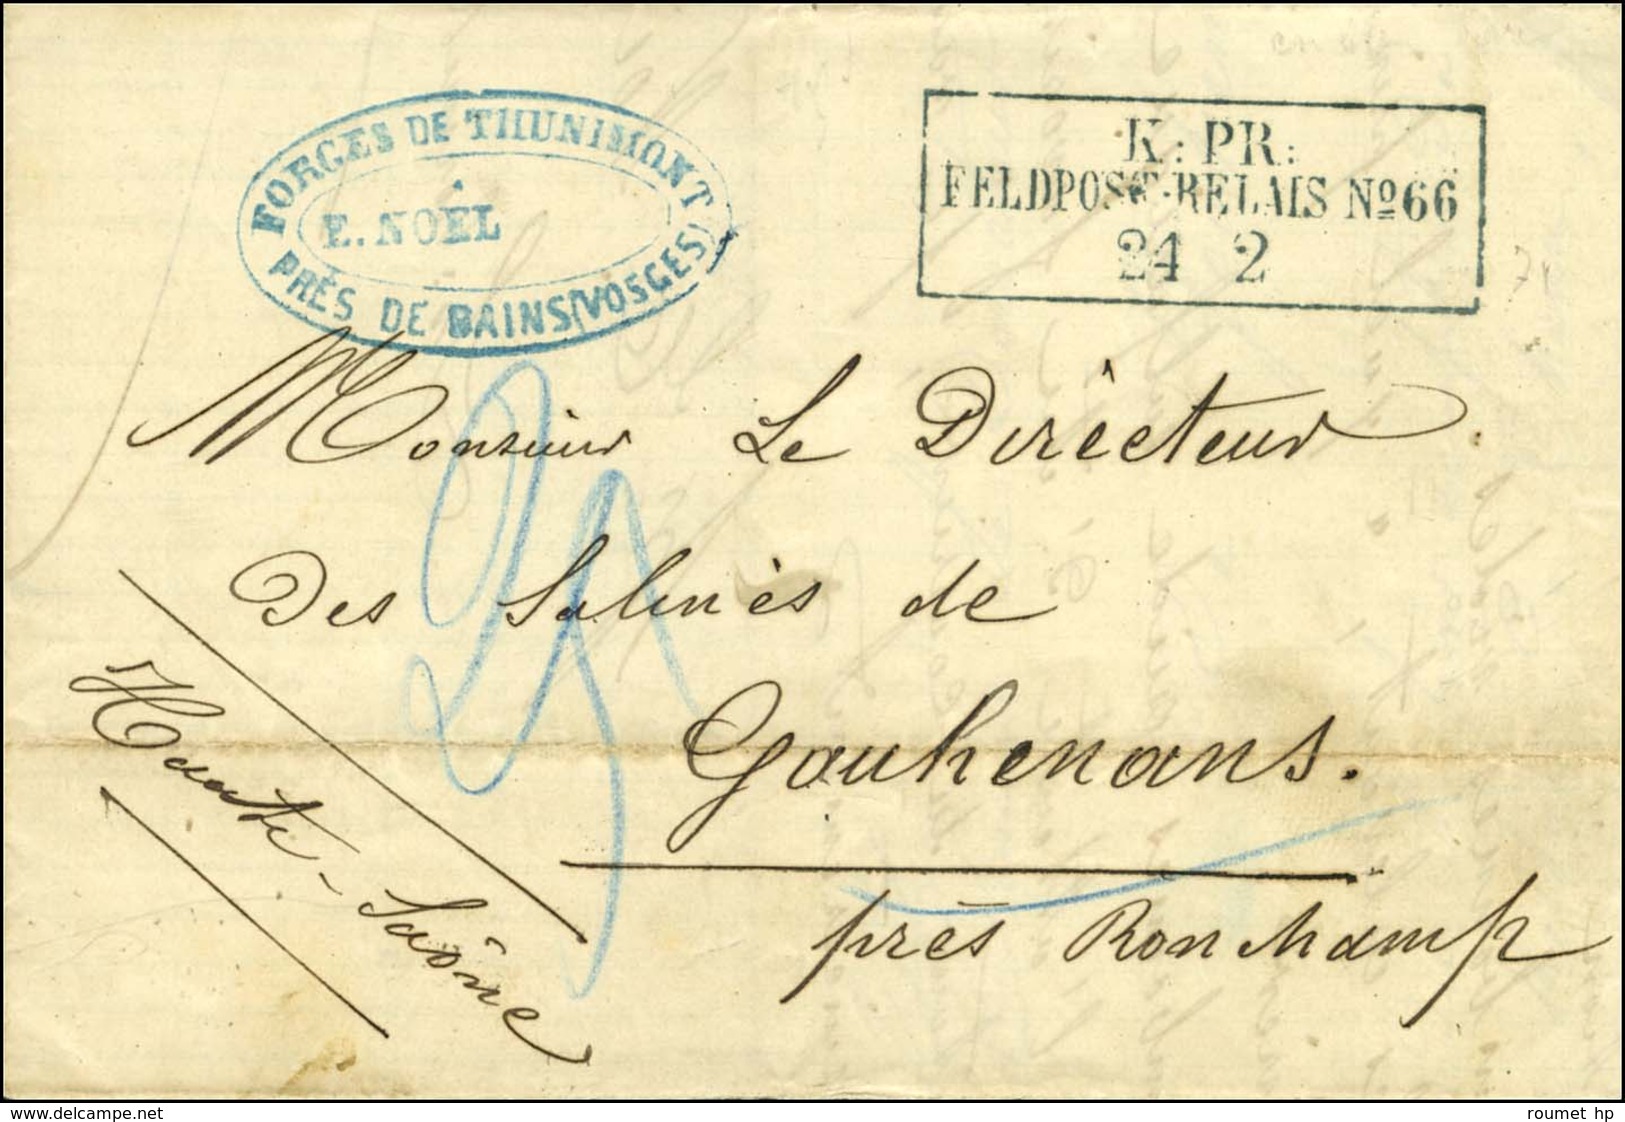 FORGES DE THUNIMONT
E. NOËL
PRÈS DE BAINS (VOSGES)
K: PR:
FELDPOST-RELAIS Nº 66
24 2
Monsieur Le Dirècteur
Des Salinès de
Gouhenans.
près Ronchamp
Haute-Saône
www.delcampe.net
roumet hp